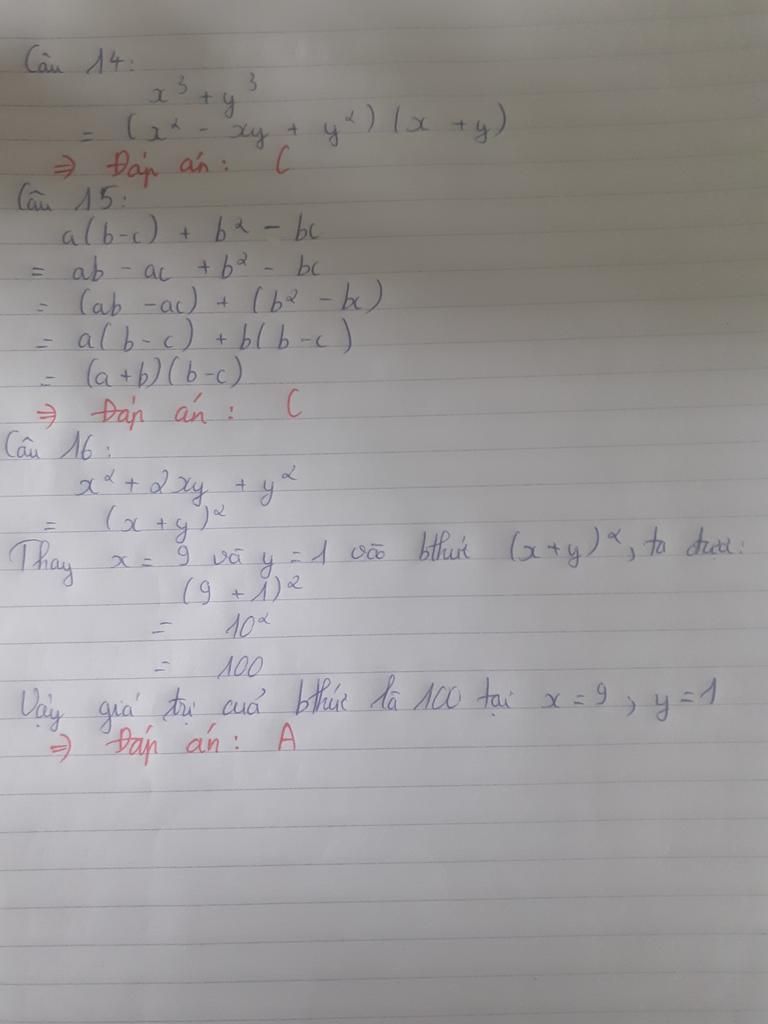 Câu 14:
x³ + y³
= (x² - xy + y²) (x + y)
⇒ Đáp án: C
Câu 15:
a(b-c) + b² - bc
= ab - ac + b² - bc
= (ab - ac) + (b² - bc)
= a(b - c) + b(b - c)
= (a + b)(b - c)
⇒ Đáp án: C
Câu 16:
x² + 2xy + y²
= (x + y)²
Thay x = 9 và y = 1 vào bthức (x+y)², ta được:
(9 + 1)²
= 10²
= 100
Vậy giá trị của bthức là 100 tại x = 9; y = 1
⇒ Đáp án: A